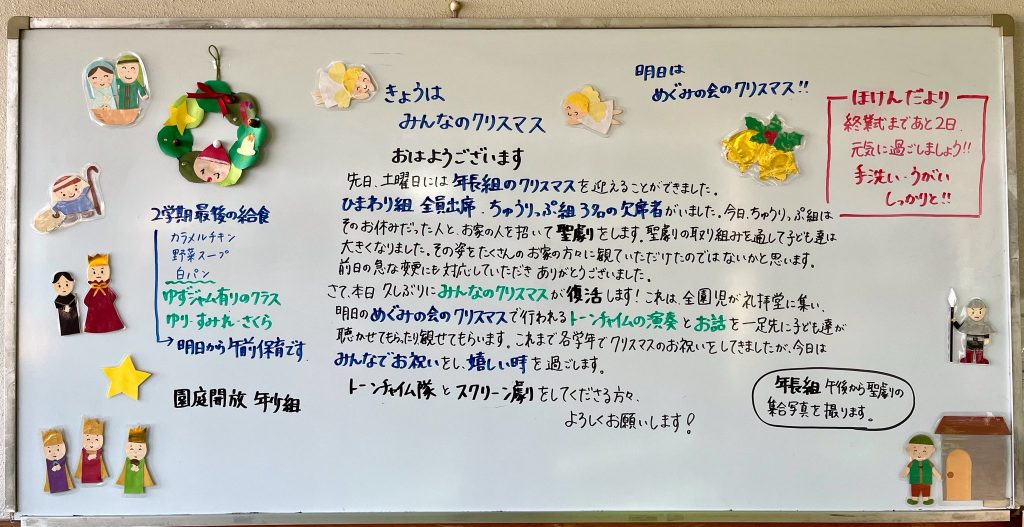 きょうは
みんなのクリスマス
明日は
めぐみの会のクリスマス!!
ほけんだより
終業式まであと2日.
元気に過ごしましょう!!
手洗い・うがい
しっかりと!!
おはようございます
先日、土曜日には年長組のクリスマスを迎えることができました。
ひまわり組 全員出席、ちゅうりっぷ組 3名の欠席者がいました。今日、ちゅうりっぷ組は
そのお休みだった人と、お家の人を招いて聖劇をします。聖劇の取り組みを通して子ども達は
大きくなりました。その姿をたくさんのお家の方々に観ていただけたのではないかと思います。
前日の急な変更にも対応していただき ありがとうございました。
さて、本日 久しぶりにみんなのクリスマスが復活します!これは、全園児が礼拝堂に集い、
明日のめぐみの会のクリスマスで行われるトーンチャイムの演奏とお話を一足先に子ども達が
聴かせてもらったり観せてもらいます。これまで各学年でクリスマスのお祝いをしてきましたが、今日は
みんなでお祝いをし、嬉しい時を過ごします。
トーンチャイム隊とスクリーン劇をしてくださる方々、
よろしくお願いします!
2学期最後の給食
カラメルチキン
野菜スープ
白パン
ゆずジャム有りのクラス
ゆり・すみれ・さくら
明日から午前保育です
園庭開放 年少組
年長組 午後から聖劇の
集合写真を撮ります。